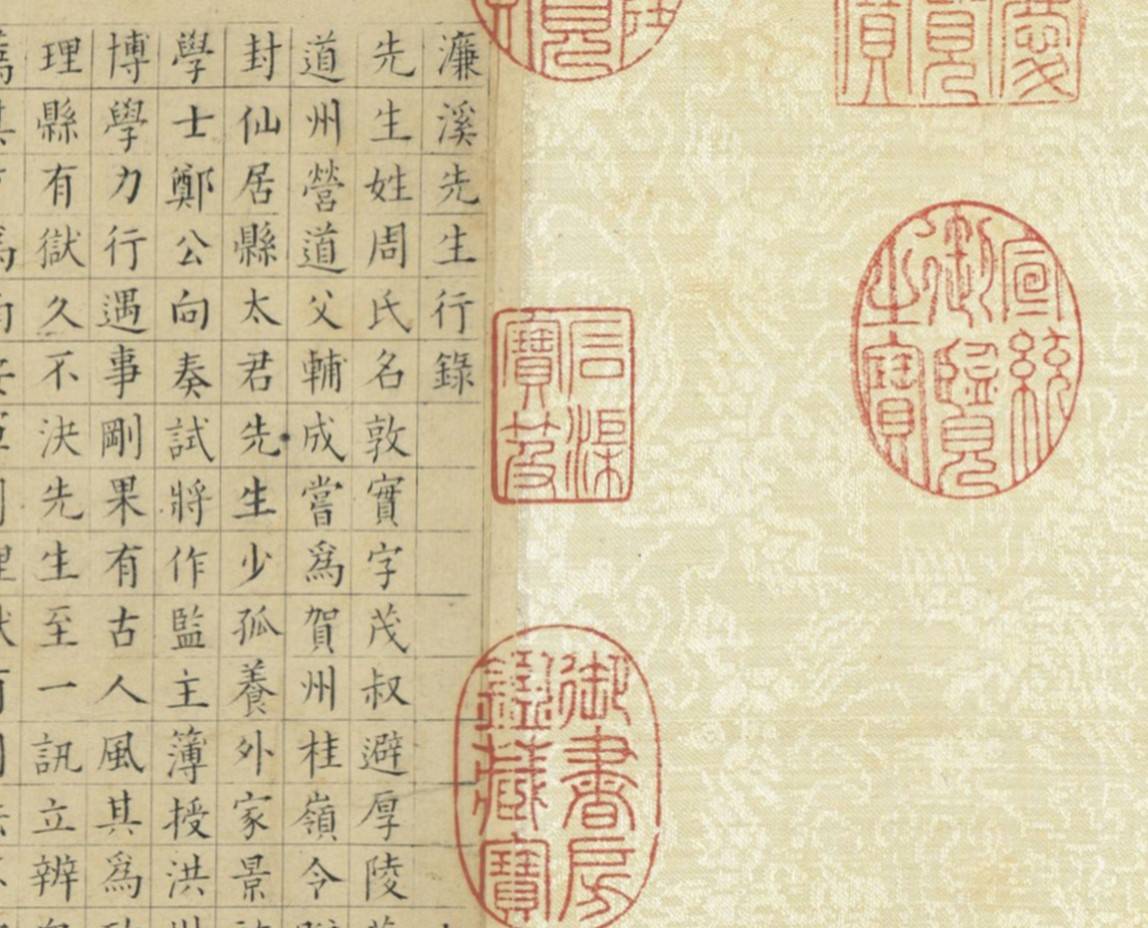 慶
覽
寶
宣統
御覽
之寶
石渠
寶笈
御書房
鑑藏寶
濂溪先生行錄
先生姓周氏名敦實字茂叔避厚陵
道州營道父輔成嘗爲賀州桂嶺令
封仙居縣太君先生少孤養外家景
學士鄭公向奏試將作監主簿授洪
博學力行遇事剛果有古人風其爲
理縣有獄久不決先生至一訊立辨